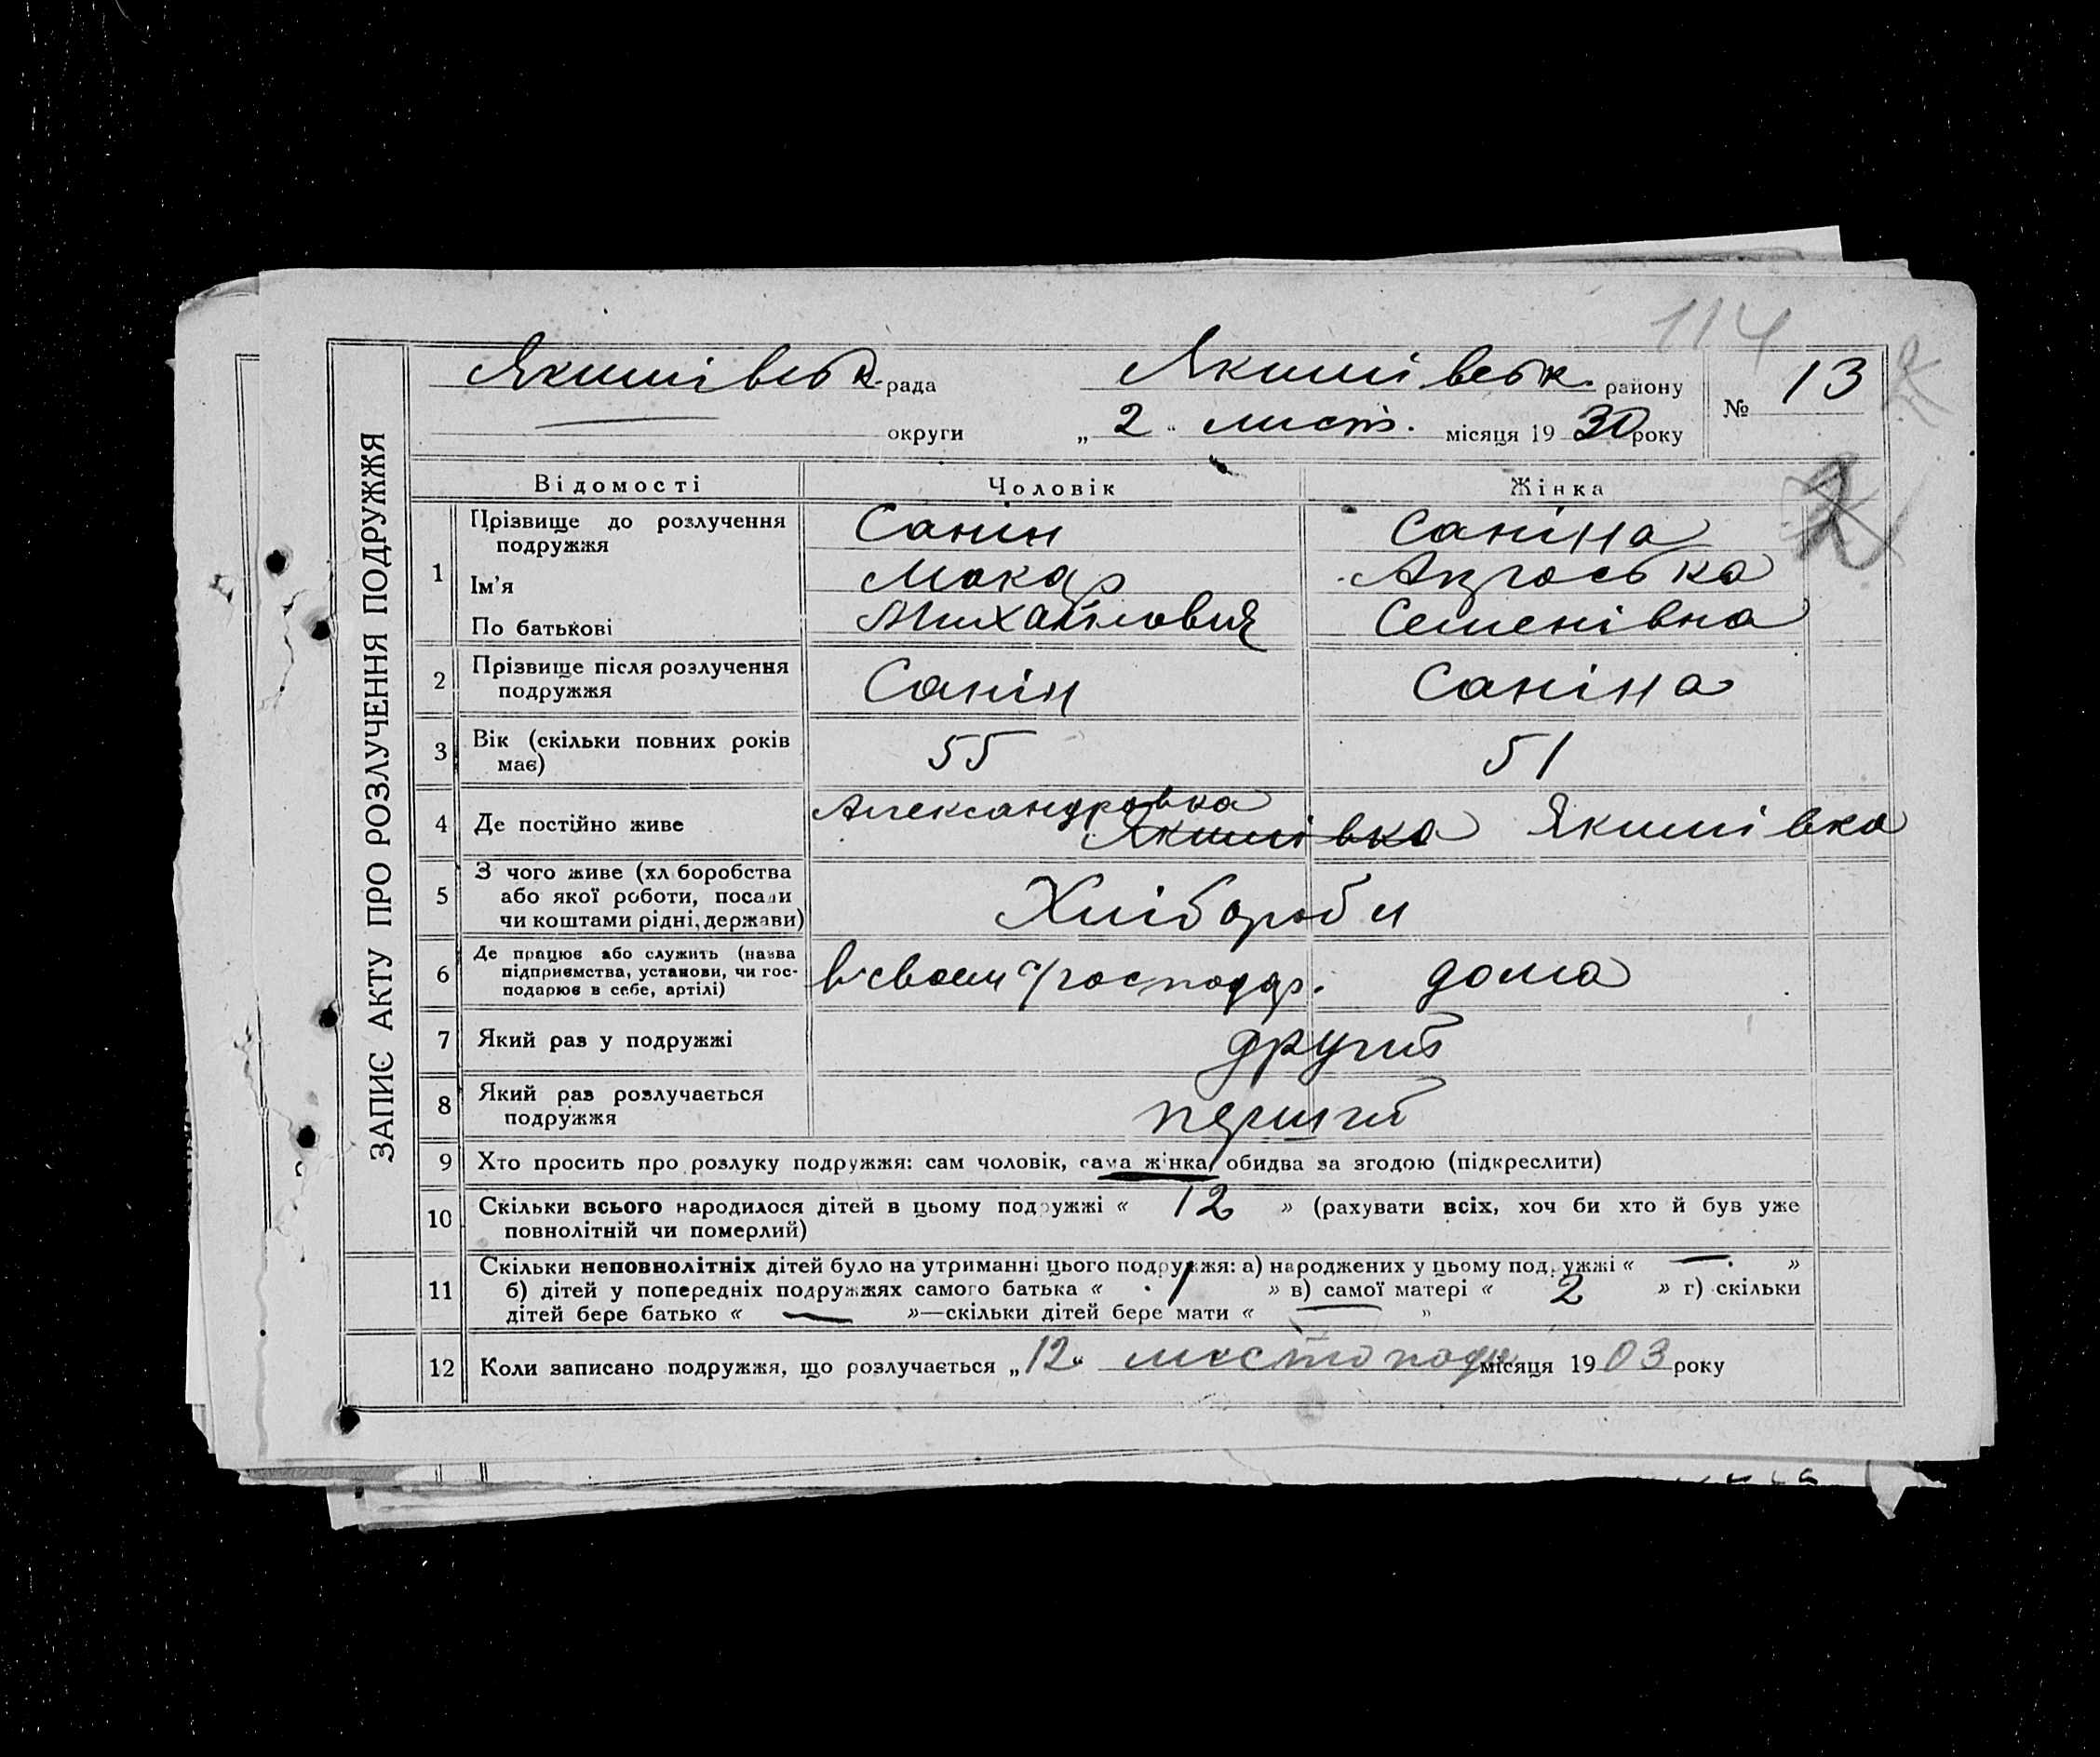 114
Якимівськ. рада Якимівськ. району № 13
округи „ 2 " лист. місяця 19 30 року
ЗАПИС АКТУ ПРО РОЗЛУЧЕННЯ ПОДРУЖЖЯ
Відомості Чоловік Жінка
1 Прізвище до розлучення Санін Саніна
подружжя
Ім'я Мокар
По батькові Михайлович Семенівна
2 Прізвище після розлучення Санін Саніна
подружжя
3 Вік (скільки повних років 55 51
має)
Александровка
4 Де постійно живе Якимівка Якимівка
З чого живе (хл боробства
5 або якої роботи, посади Хлібороби
чи коштами рідні, держави)
Де працює або служить (назва
6 підприємства, установи, чи гос- в своем господар. дома
подарює в себе, артілі)
7 Який раз у подружжі другий
8 Який раз розлучається перший
подружжя
9 Хто просить про розлуку подружжя: сам чоловік, сама жінка, обидва за згодою (підкреслити)
10 Скільки всього народилося дітей в цьому подружжі « 12 » (рахувати всіх, хоч би хто й був уже
повнолітній чи померлий)
Скільки неповнолітніх дітей було на утриманні цього подружжя: а) народжених у цьому подружжі « — »
11 б) дітей у попередніх подружжях самого батька « 1 » в) самої матері « 2 » г) скільки
дітей бере батько « — »—скільки дітей бере мати « — »
12 Коли записано подружжя, що розлучається „ 12 " листопада місяця 19 03 року